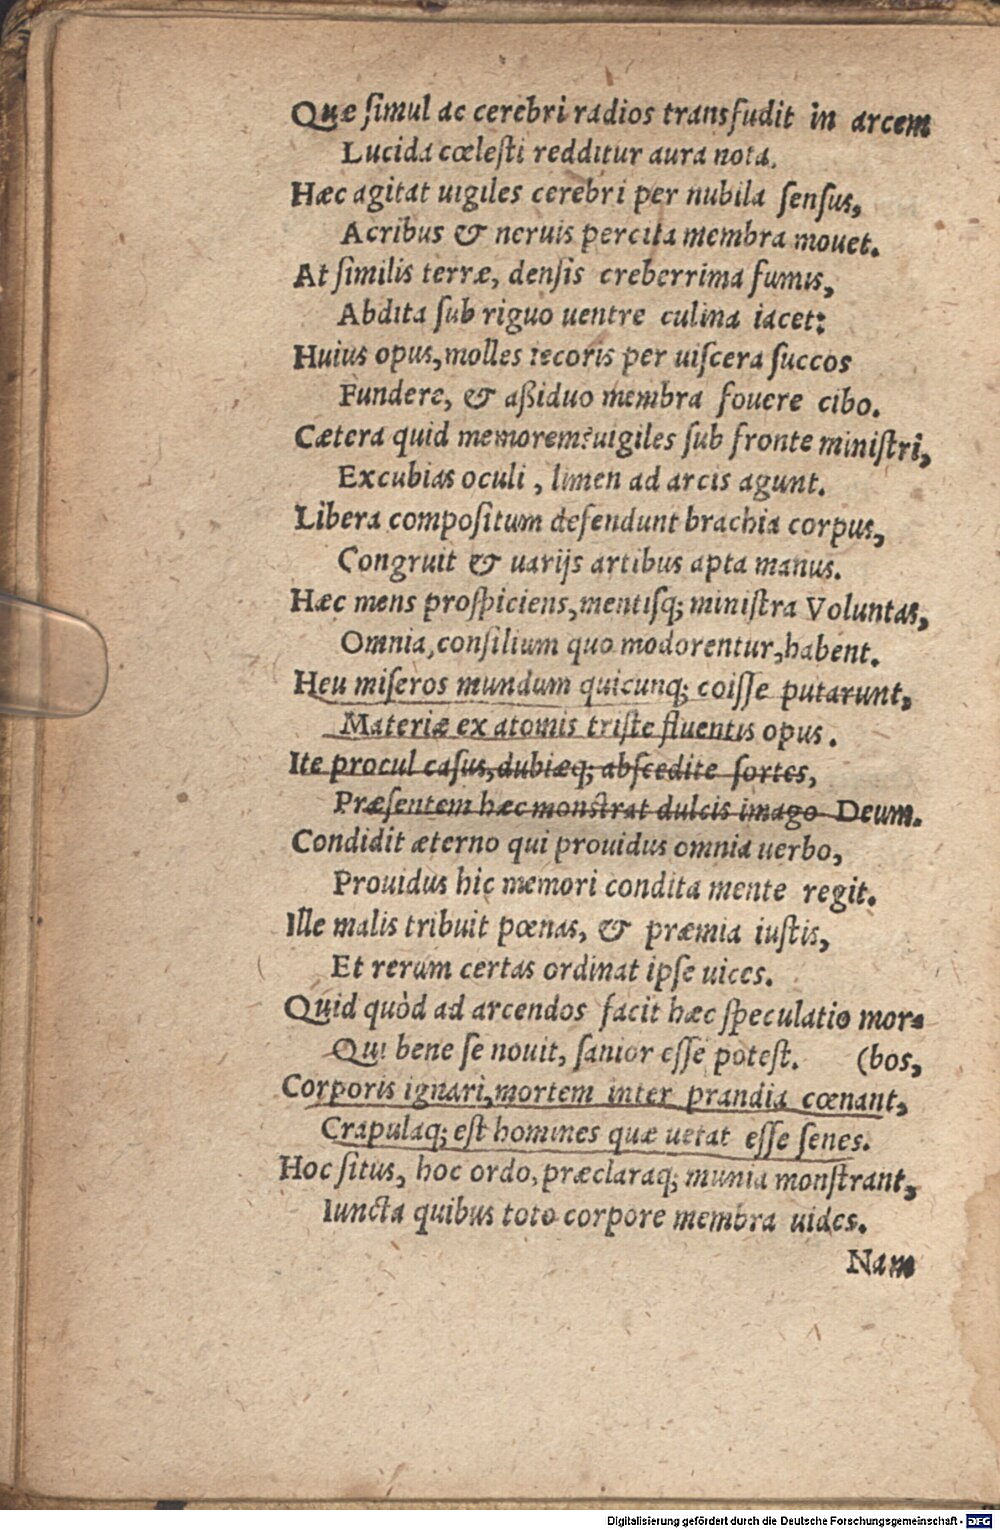 Quæ ſimul ac cerebri radios transfudit in arcem
Lucida cœleſti redditur aura nota.
Hæc agitat uigiles cerebri per nubila ſenſus,
Acribus & neruis percita membra mouet.
At ſimilis terræ, denſis creberrima fumis,
Abdita ſub riguo uentre culina iacet:
Huius opus, molles iecoris per uiſcera ſuccos
Fundere, & aßiduo membra fouere cibo.
Cætera quid memorem? uigiles ſub fronte miniſtri,
Excubias oculi, limen ad arcis agunt.
Libera compoſitum defendunt brachia corpus,
Congruit & uarijs artibus apta manus.
Hæc mens proſpiciens, mentiſq; miniſtra Voluntas,
Omnia, conſilium quo modorentur, habent.
Heu miſeros mundum quicunq; coiſſe putarunt,
Materiæ ex atomis triſte fluentis opus.
Ite procul caſus, dubiæq; abſcedite ſortes,
Præſentem hæc monſtrat dulcis imago Deum.
Condidit æterno qui prouidus omnia uerbo,
Prouidus hic memori condita mente regit.
Ille malis tribuit pœnas, & præmia iuſtis,
Et rerum certas ordinat ipſe uices.
Quid quòd ad arcendos facit hæc ſpeculatio mor-
Qui bene ſe nouit, ſanior eſſe poteſt. (bos,
Corporis ignari, mortem inter prandia cœnant,
Crapulaq; eſt homines quæ uetat eſſe ſenes.
Hoc ſitus, hoc ordo, præclaraq; munia monſtrant,
Iuncta quibus toto corpore membra uides.
Nam
Digitalisierung gefördert durch die Deutsche Forschungsgemeinschaft - DFG